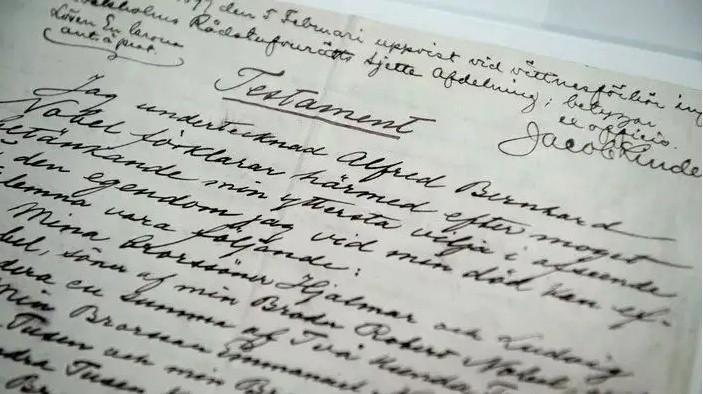 97 den 5 Februari uppvist vid vittnesförhör inf
Stockholms Rådstufvurätts sjette Afdelning; betygar
Löven En krona
ex officio.
Testament
Jag undertecknad Alfred Bernhard
Nobel förklarar härmed efter moget
betänkande min yttersta vilja i afseende
å den egendom jag vid min död kan ef-
terlemna vara följande:
Mina Brorsöner Hjalmar och Ludvig
bel, söner af min Broder Robert Nobel,
dera en summa af Två Hundra T
Min Brorson Emmanuel
Tusen och min Br
dra Tusen